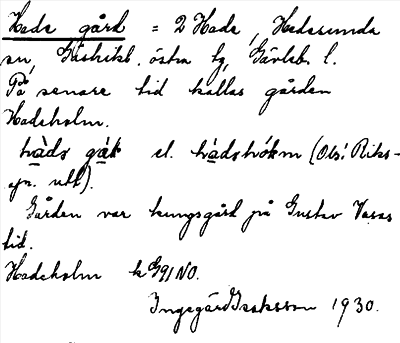 Hade gård = 2 Hade, Hedesunda
sn, Gästrikl. östra tg, Gävleb. l.
På senare tid kallas gården
Hadeholm.
hàds gåk el. hàdshókm (Obs! Riks-
spr. utt).
Gården var kungsgård på Gustav Vasas
tid.
Hadeholm k G91 NO.
Ingegärd Isaksson 1930.